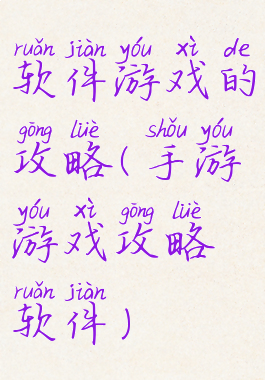 ruǎn jiàn yóu xì de
软件游戏的
gōng lüè shǒu yóu
攻略(手游
yóu xì gōng lüè
游戏攻略
ruǎn jiàn
软件)